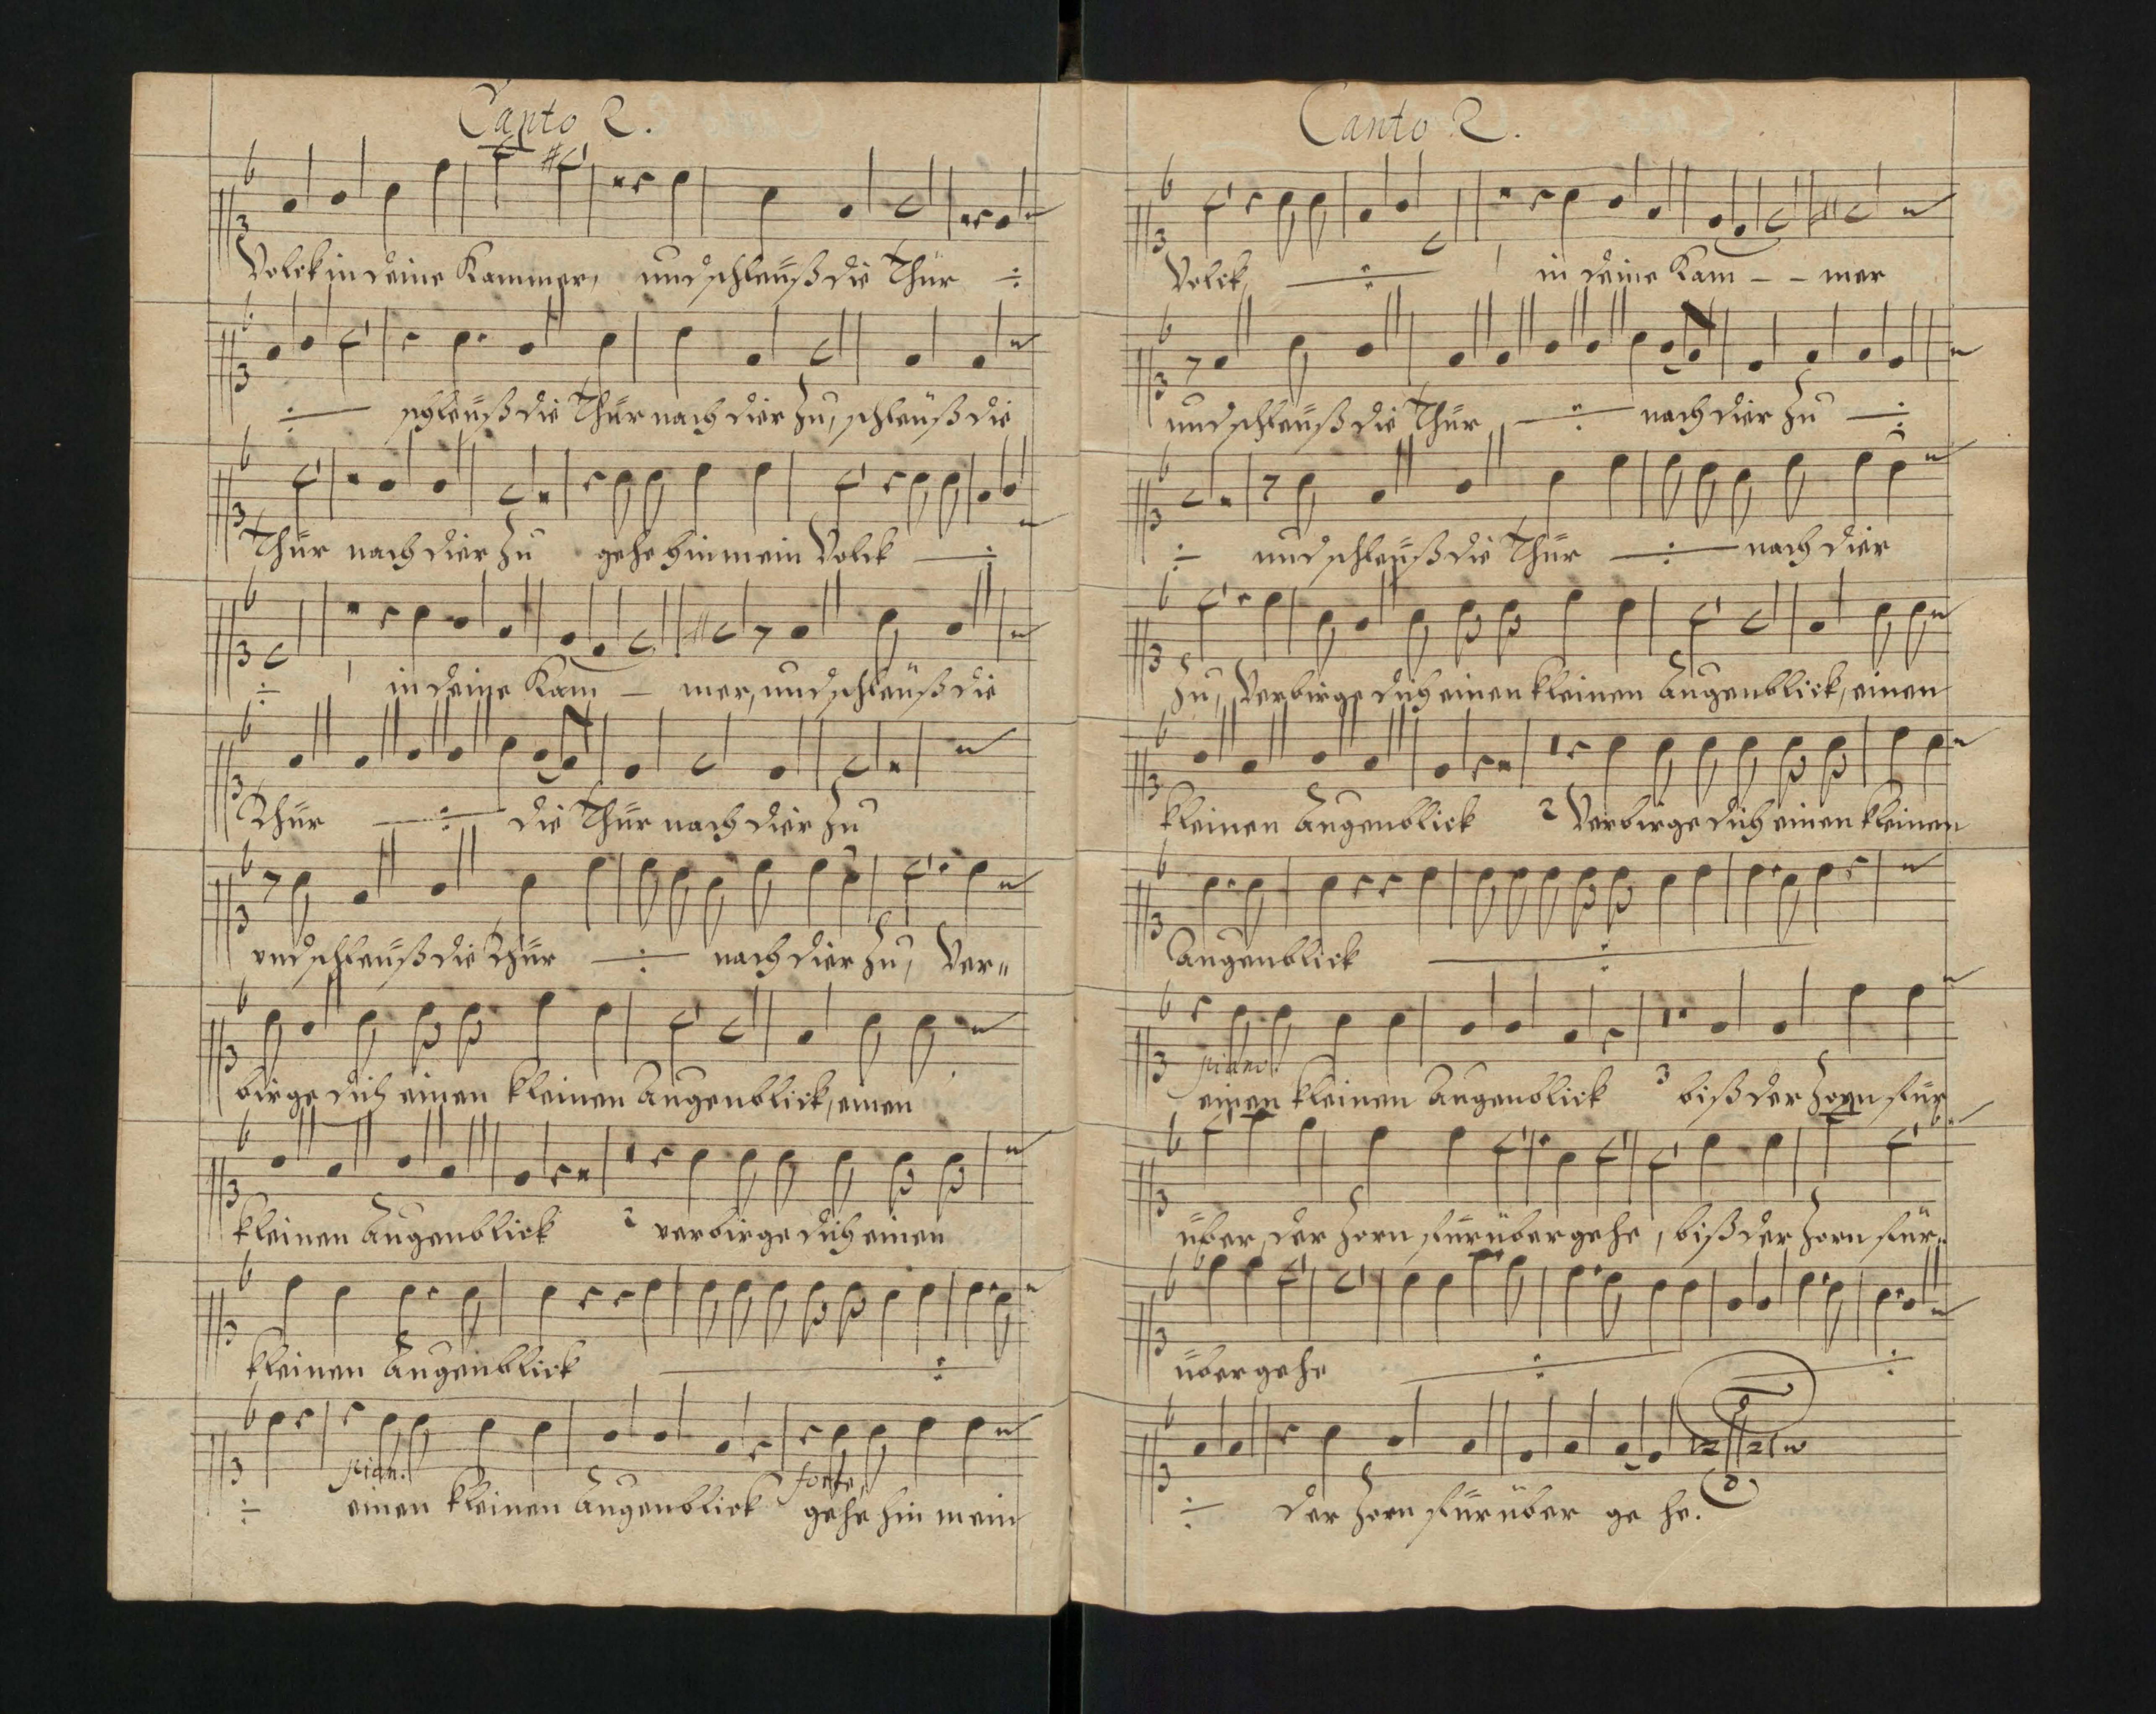 Canto 2.
Volck in deine Kammer, und schleuß die Thür ÷
÷ schleuß die Thür nach dier zu, schleuß die
Thür nach dier zu gehe hin mein Volck ÷
÷ in deine Kam - mer, und schleuß die
Thür ÷ die Thür nach dier zu
vnd schleuß die Thür ÷ nach dier zu, Ver„
birge dich einen kleinen Augenblick, einen
kleinen Augenblick 2 verbirge dich einen
kleinen Augenblick ÷
pian. forte,
÷ einen kleinen Augenblick gehe hin mein
Canto 2.
Volck, ÷ in deine Kam - - mer
und schleuß die Thür ÷ nach dier zu ÷
÷ und schleuß die Thür ÷ nach dier
zu, Verbirge dich einen kleinen Augenblick, einen
kleinen Augenblick 2 Verbirge dich einen kleinen
Augenblick ÷
piano.
einen kleinen Augenblick 3 biß der Zorn für
über, der Zorn fürüber gehe, biß der Zorn für„
über gehe ÷ ÷
÷ der Zorn fürüber ge he.